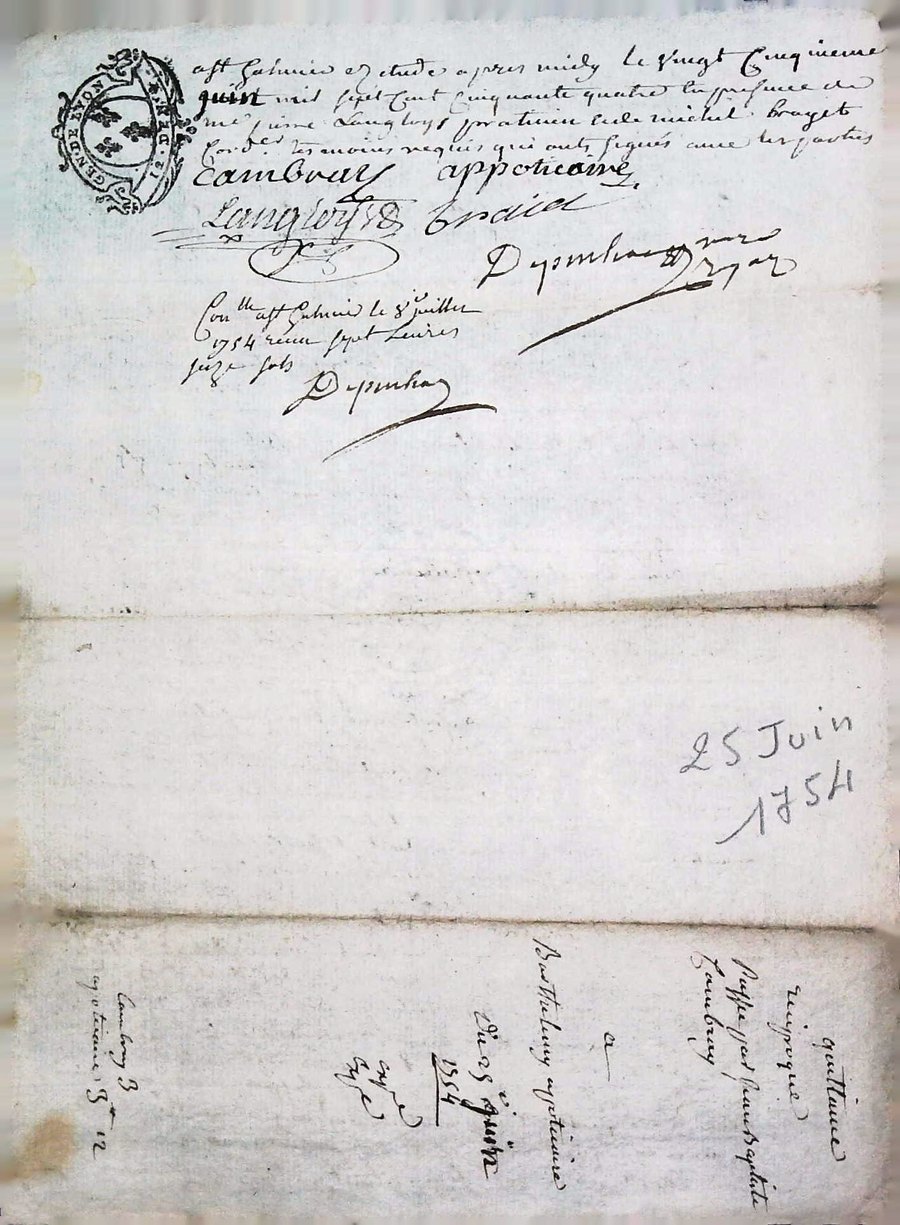 GEN. DE LYON
aSt Galmier ez etude apres midy le vingt Cinquieme
juin mil sept Cent Cinquante quatre En presence de
me pierre Langloys praticien et de michel
Cord.er temoins requis qui onts signés avec les parties
Cambray appoticaire
Langloys
Depinhac nore
royal
Con.lle aSt Galmier le 8e juillet
1754 receu sept Livres
seize sols
Depinhac
25 Juin
1754
quittance
reciproque
Passée par Jean Baptiste
Cambray
a
Barthelemy appoticaire
Du 25e juin
1754
Exp.e
Exp.e
Cambray 3
apoticaire 3 12